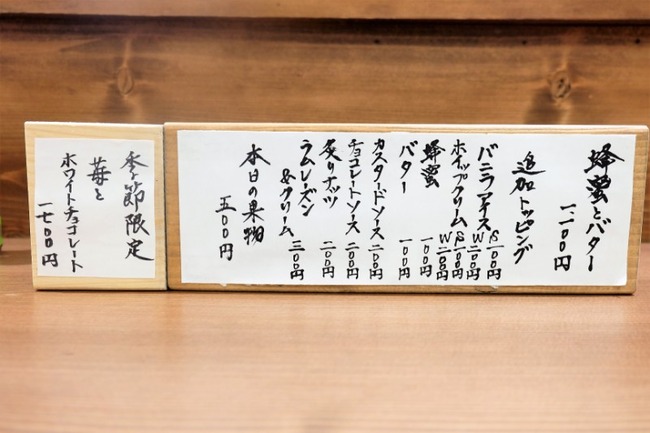 蜂蜜とバター
一一〇〇円
追加トッピング
バニラアイス
ホイップクリーム S一〇〇円
W二〇〇円
蜂蜜 一〇〇円
バター 一〇〇円
カスタードソース 二〇〇円
チョコレートソース 二〇〇円
炙りナッツ 二〇〇円
ラムレーズン
&クリーム 三〇〇円
本日の果物
五〇〇円
季節限定
苺と
ホワイトチョコレート
一七〇〇円